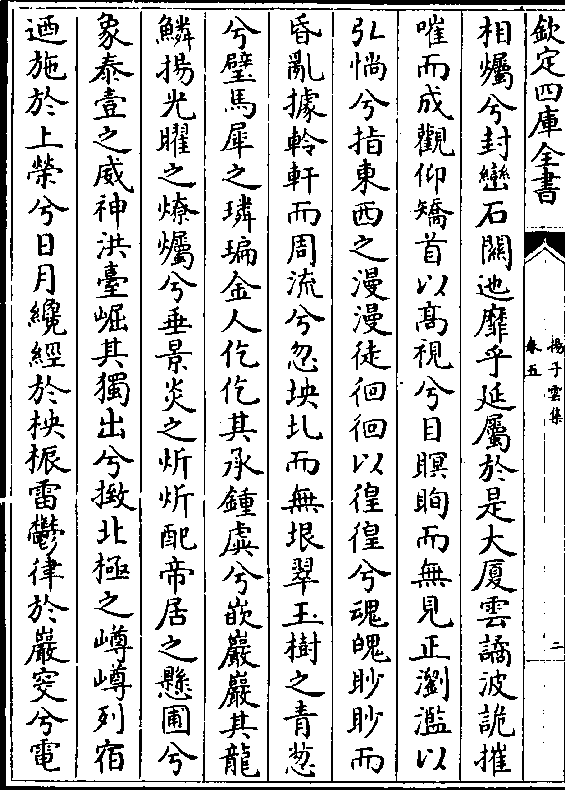 欽定四庫全書
揚子雲集
卷五
二
相爥兮封巒石關迆靡乎延屬於是大厦雲譎波詭摧
嗺而成觀仰矯首以髙視兮目瞑眴而無見正瀏濫以
弘惝兮指東西之漫漫徒徊徊以徨徨兮魂魄眇眇而
昏亂據軨軒而周流兮忽坱圠而無垠翠玉樹之青葱
兮璧馬犀之璘㻞金人仡仡其承鍾虡兮嵌巖巖其龍
鱗揚光曜之燎爥兮垂景炎之炘炘配帝居之懸圃兮
象泰壹之威神洪臺崛其獨出兮㨖北極之嶟嶟列宿
迺施於上榮兮日月纔經於柍桭雷鬱律於巖窔兮電